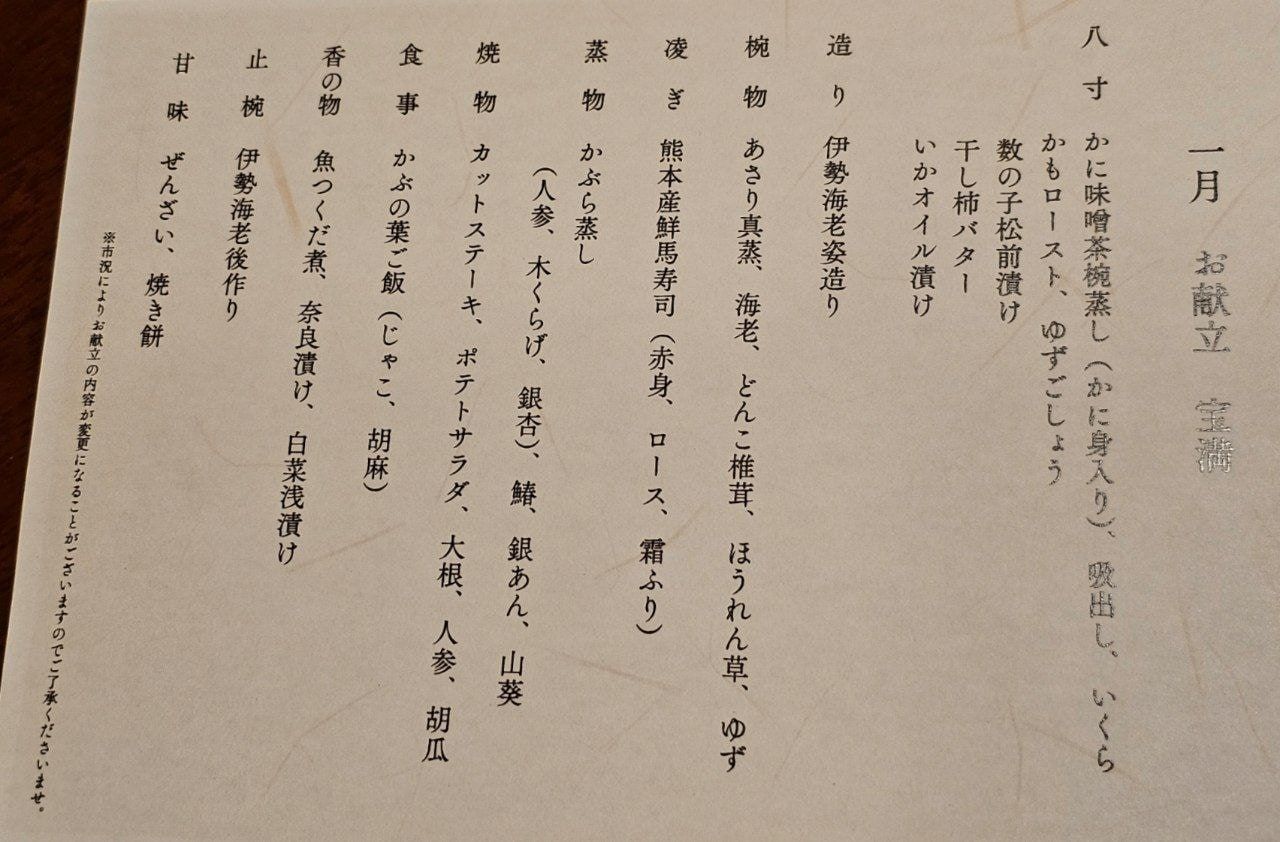 一月　お献立　宝満
八寸　かに味噌茶椀蒸し（かに身入り）、吸出し、いくら
かもロースト、ゆずごしょう
数の子松前漬け
干し柿バター
いかオイル漬け
造り　伊勢海老姿造り
椀物　あさり真蒸、海老、どんこ椎茸、ほうれん草、ゆず
凌ぎ　熊本産鮮馬寿司（赤身、ロース、霜ふり）
蒸物　かぶら蒸し
（人参、木くらげ、銀杏）、鰆、銀あん、山葵
焼物　カットステーキ、ポテトサラダ、大根、人参、胡瓜
食事　かぶの葉ご飯（じゃこ、胡麻）
香の物　魚つくだ煮、奈良漬け、白菜浅漬け
止椀　伊勢海老後作り
甘味　ぜんざい、焼き餅
※市況によりお献立の内容が変更になることがございますのでご了承くださいませ。